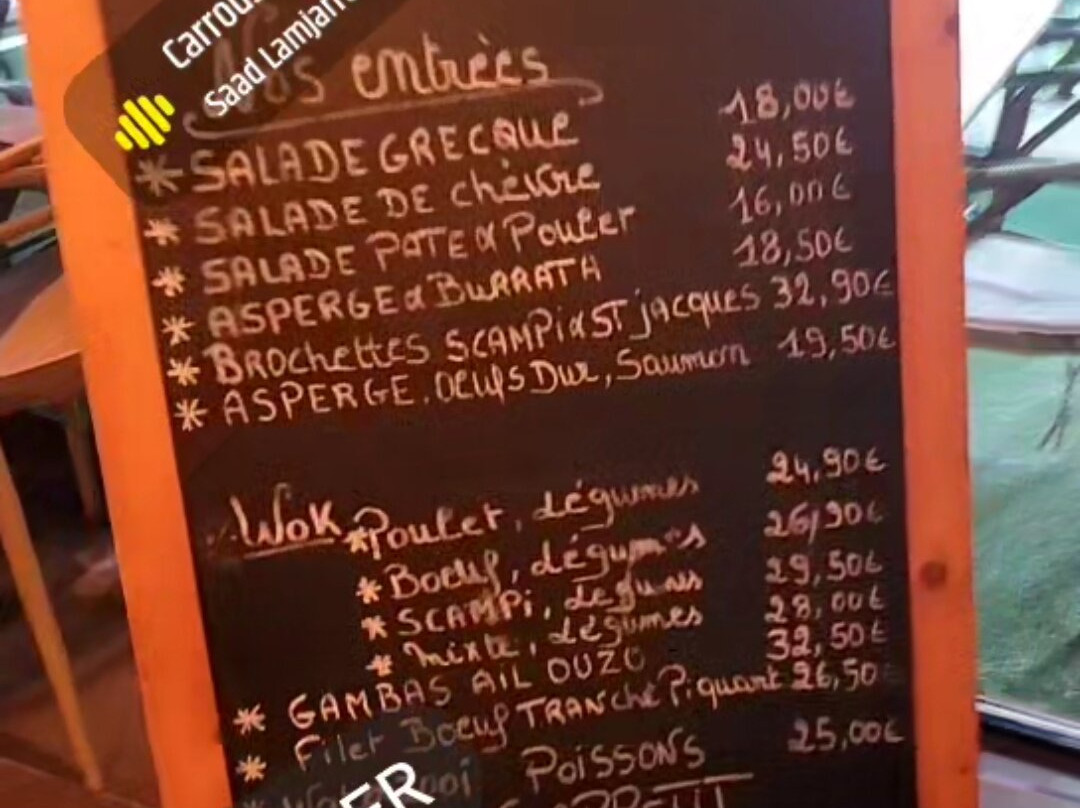 Saad Lamjarr
Nos entrèes
* SALADE GRECQUE 18,00€
* SALADE DE chèvre 24,50€
* SALADE PATE & Poulet 16,00€
* ASPERGE & BURRATA 18,50€
* BROchettes SCAMPi & ST jacques 32,90€
* ASPERGE. OEUfS Dur, Saumon 19,50€
Wok *Poulet, légumes 24,90€
* Boeuf, légumes 26,90€
* SCAMPi, légumes 29,50€
* mixte, légumes 28,00€
* GAMBAS AIL OUZO 32,50€
* Filet Boeuf TRANché Piquant 26,50
POiSSONS 25,00€